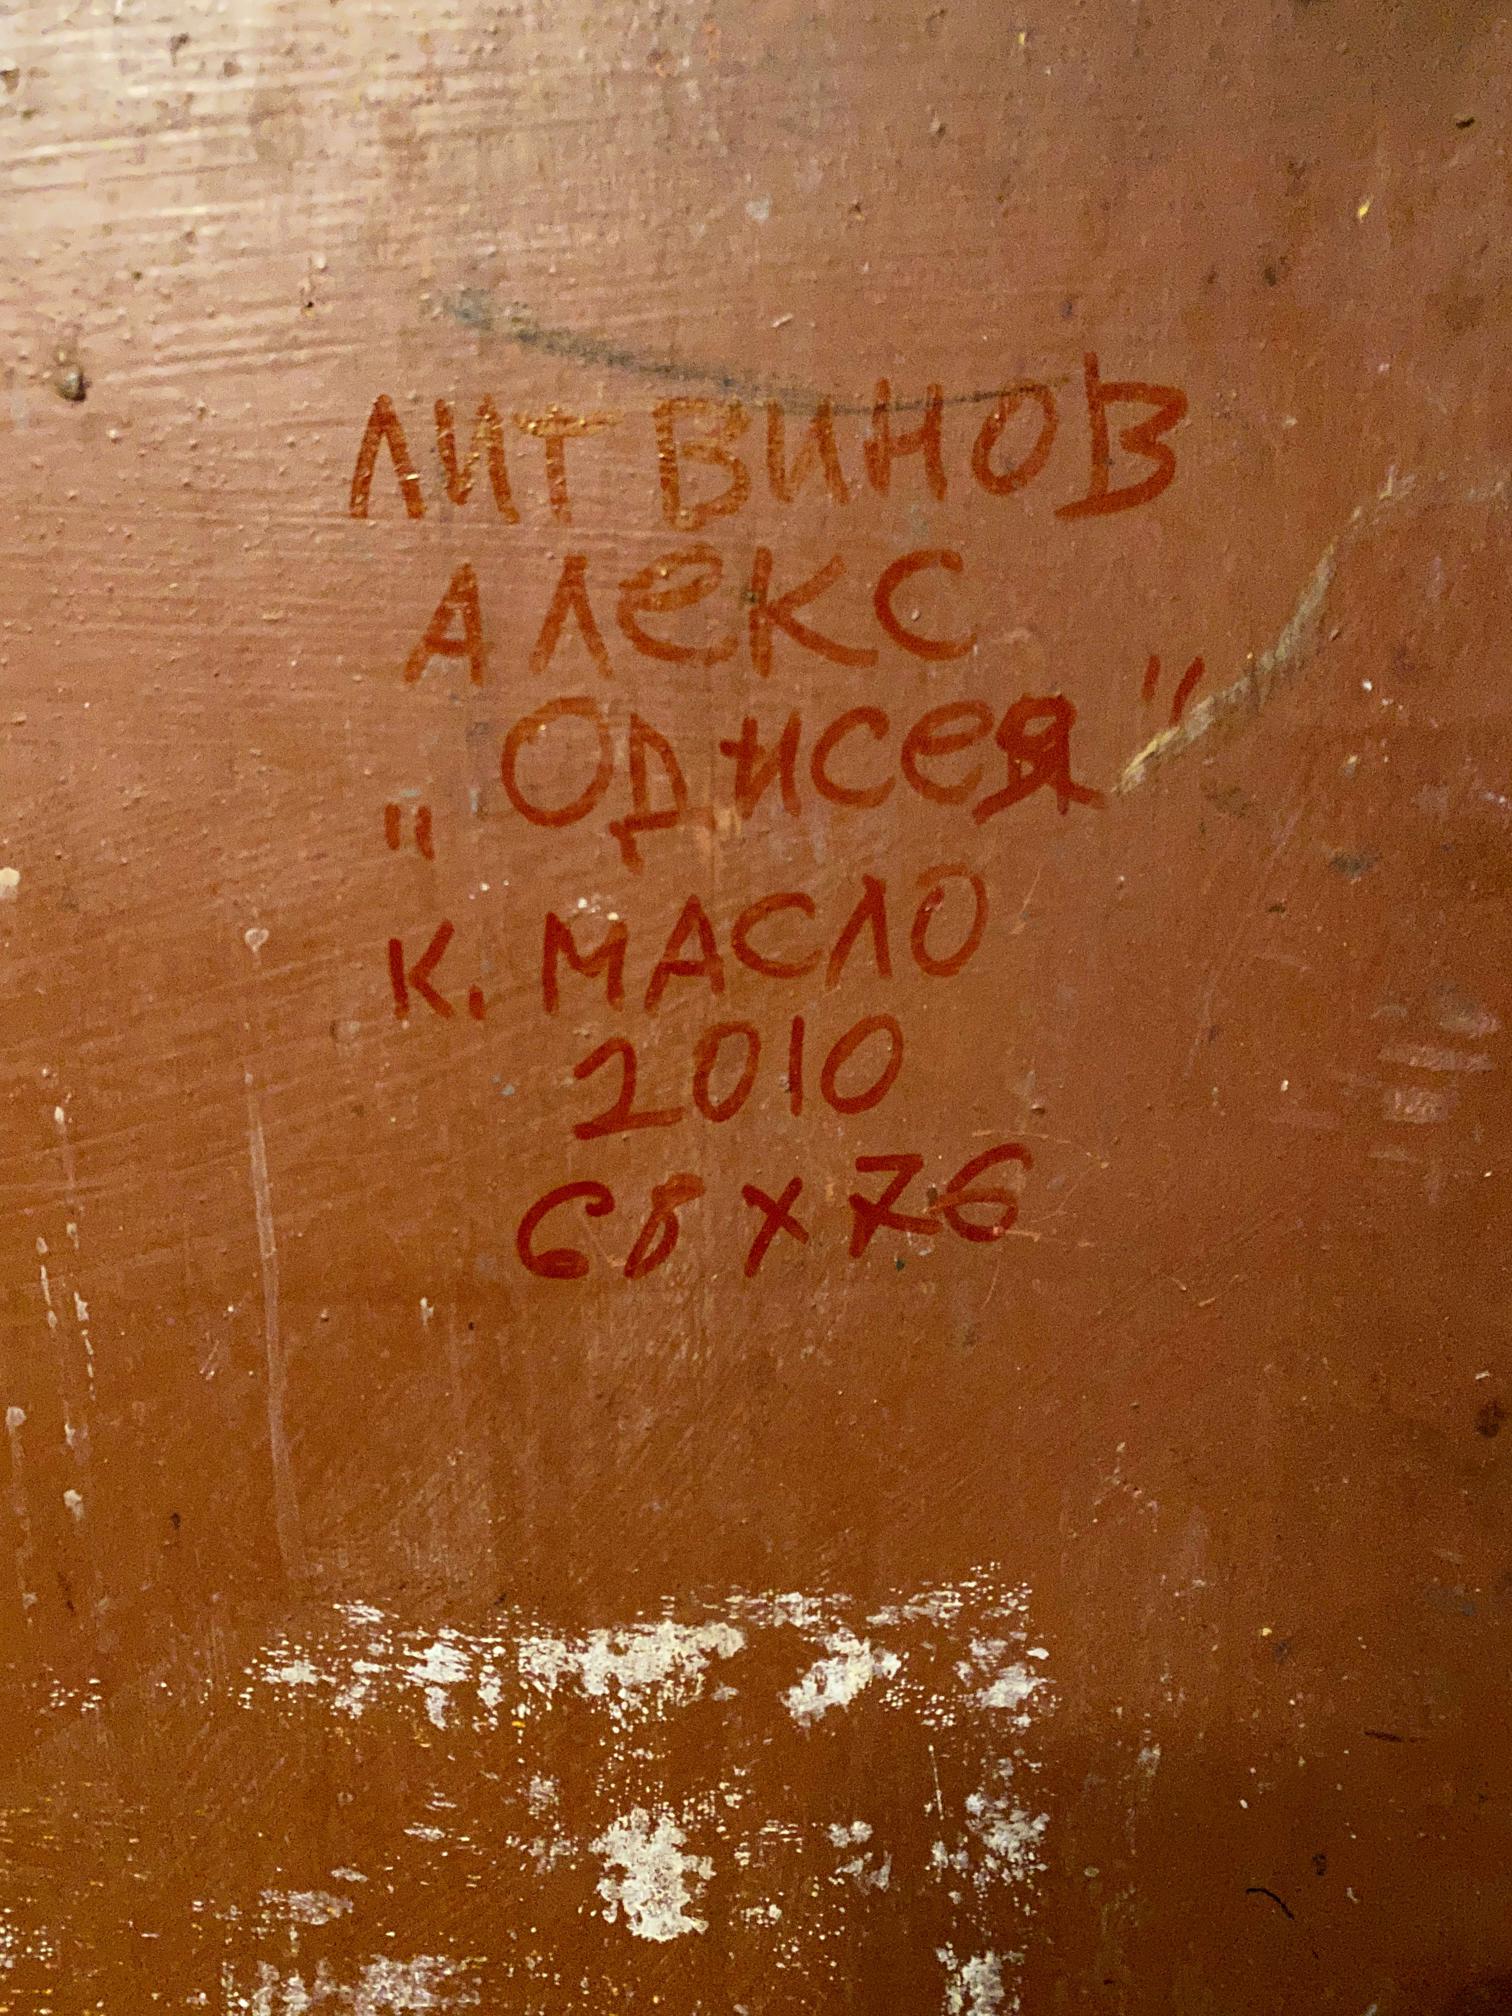 ЛИТВИНОВ
АЛЕКС
"ОДИСЕЯ"
К. МАСЛО
2010
68 x 76